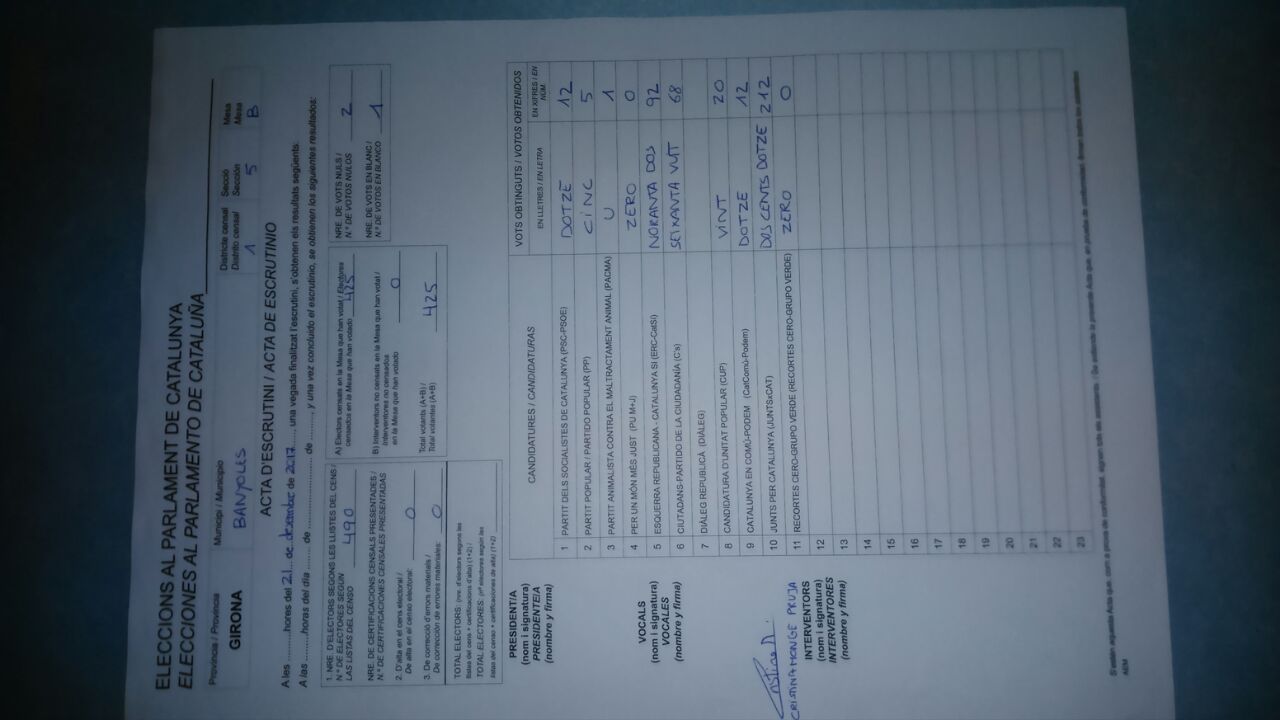 ELECCIONS AL PARLAMENT DE CATALUNYA
ELECCIONES AL PARLAMENTO DE CATALUÑA
Província / Provincia
GIRONA
Municipi / Municipio
BANYOLES
Districte censal
Distrito censal
1
Secció
Sección
5
Mesa
Mesa
B
ACTA D'ESCRUTINI / ACTA DE ESCRUTINIO
A les ..........hores del 21 de desembre de 2017 una vegada finalitzat l'escrutini, s'obtenen els resultats següents:
A las ..........horas del día ...... de ............................ de ........, y una vez concluido el escrutinio, se obtienen los siguientes resultados:
1. NRE. D'ELECTORS SEGONS LES LLISTES DEL CENS /
N.º DE ELECTORES SEGÚN
LAS LISTAS DEL CENSO 490
NRE. DE CERTIFICACIONS CENSALS PRESENTADES /
N.º DE CERTIFICACIONES CENSALES PRESENTADAS
2. D'alta en el cens electoral /
De alta en el censo electoral: 0
3. De correcció d'errors materials /
De corrección de errores materiales: 0
TOTAL ELECTORS: (nre. d'electors segons les
llistes del cens + certificacions d'alta) (1+2) /
TOTAL ELECTORES: (nº electores según las
listas del censo + certificaciones de alta) (1+2)
A) Electors censats en la Mesa que han votat / Electores
censados en la Mesa que han votado 425
B) Interventors no censats en la Mesa que han votat /
Interventores no censados
en la Mesa que han votado 0
Total votants (A+B) /
Total votantes (A+B) 425
NRE. DE VOTS NULS /
N.º DE VOTOS NULOS 2
NRE. DE VOTS EN BLANC /
N.º DE VOTOS EN BLANCO 1
CANDIDATURES / CANDIDATURAS
VOTS OBTINGUTS / VOTOS OBTENIDOS
EN LLETRES / EN LETRA
EN XIFRES / EN NÚM
1 PARTIT DELS SOCIALISTES DE CATALUNYA (PSC-PSOE) DOTZE 12
2 PARTIT POPULAR / PARTIDO POPULAR (PP) CINC 5
3 PARTIT ANIMALISTA CONTRA EL MALTRACTAMENT ANIMAL (PACMA) U 1
4 PER UN MÓN MÉS JUST (PU M+J) ZERO 0
5 ESQUERRA REPUBLICANA - CATALUNYA SI (ERC-CatSI) NORANTA DOS 92
6 CIUTADANS-PARTIDO DE LA CIUDADANÍA (C's) SEIXANTA VUIT 68
7 DIÀLEG REPUBLICÀ (DIÀLEG)
8 CANDIDATURA D'UNITAT POPULAR (CUP) VINT 20
9 CATALUNYA EN COMÚ-PODEM (CatComú-Podem) DOTZE 12
10 JUNTS PER CATALUNYA (JUNTSxCAT) DOS CENTS DOTZE 212
11 RECORTES CERO-GRUPO VERDE (RECORTES CERO-GRUPO VERDE) ZERO 0
12
13
14
15
16
17
18
19
20
21
22
23
PRESIDENT/A
(nom i signatura)
PRESIDENTE/A
(nombre y firma)
VOCALS
(nom i signatura)
VOCALES
(nombre y firma)
CRISTINA MONGE PRUJA
INTERVENTORS
(nom i signatura)
INTERVENTORES
(nombre y firma)